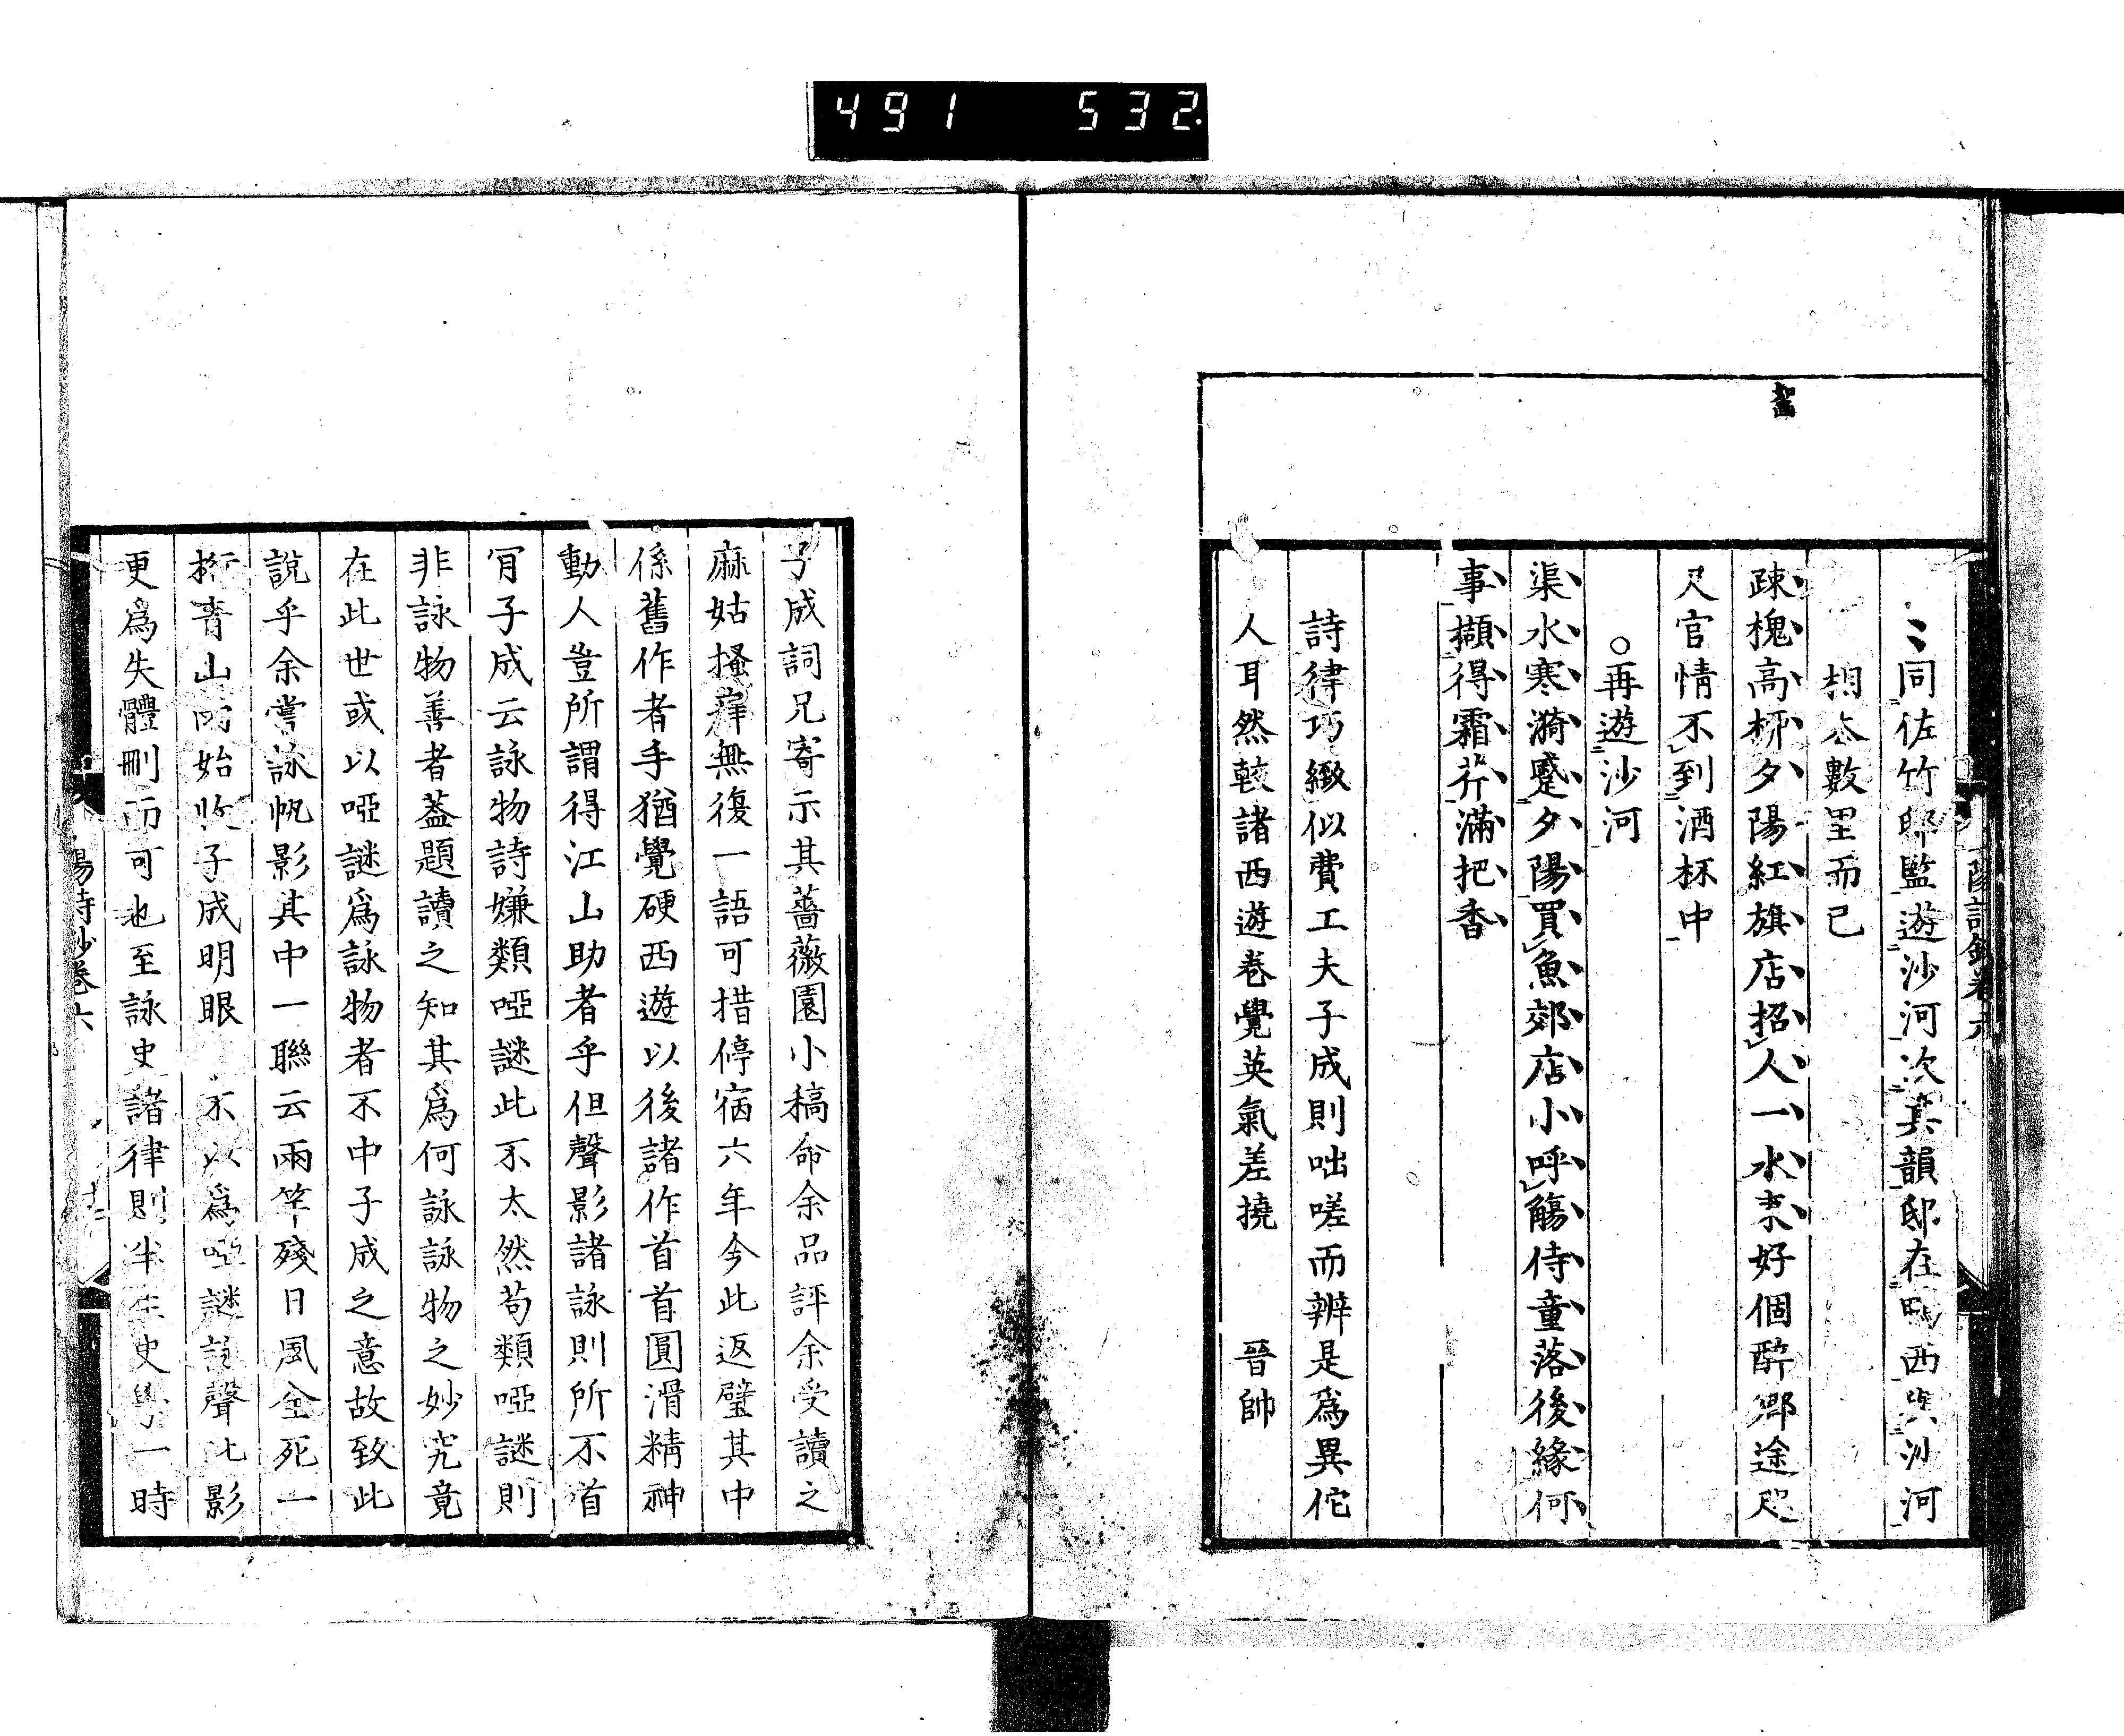 491 532
同佐竹邸監遊沙河次其韻邸在鴨西與沙河
相去數里而已
疎槐高柳夕陽紅旗店招人一水東好個醉鄉途咫
尺官情不到酒杯中
○再遊沙河
渠水寒漪蹙夕陽買魚郊店小呼觴侍童落後緣何
事擷得霜芥滿把香
詩律巧緻似費工夫子成則咄嗟而辨是爲異佗
人耳然較諸西遊卷覺英氣差撓 晉帥
子成詞兄寄示其薔薇園小稿命余品評余受讀之
麻姑搔痒無復一語可措停宿六年今此返璧其中
係舊作者手猶覺硬西遊以後諸作首首圓滑精神
動人豈所謂得江山助者乎但聲影諸詠則所不首
肎子成云詠物詩嫌類啞謎此不太然苟類啞謎則
非詠物善者蓋題讀之知其爲何詠詠物之妙究竟
在此世或以啞謎爲詠物者不中子成之意故致此
說乎余嘗詠帆影其中一聯云兩竿殘日風全死一
抹青山雨始收子成明眼 不以爲啞謎諸聲比影
更爲失體刪而可也至詠史諸律則半生史學一時
陽詩鈔卷六